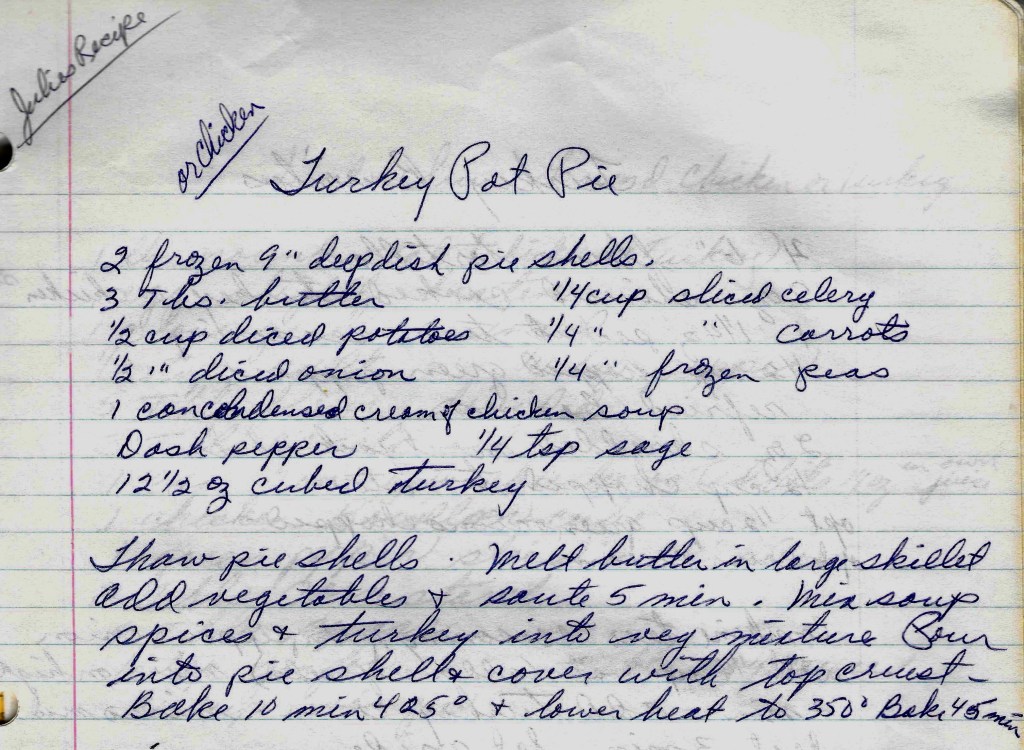 Julies Recipe
or Chicken
Turkey Pot Pie
2 frozen 9" deepdish pie shells.
3 Tbs. butter 1/4 cup sliced celery
1/2 cup diced potatoes 1/4 " " carrots
1/2 " diced onion 1/4 " frozen peas
1 can condensed cream of chicken soup
Dash pepper 1/4 tsp sage
12 1/2 oz cubed turkey
Thaw pie shells. Melt butter in large skillet
add vegetables + saute 5 min. Mix soup
spices + turkey into veg mixture Pour
into pie shell + cover with top crust -
Bake 10 min 425° + lower heat to 350° Bake 45 min